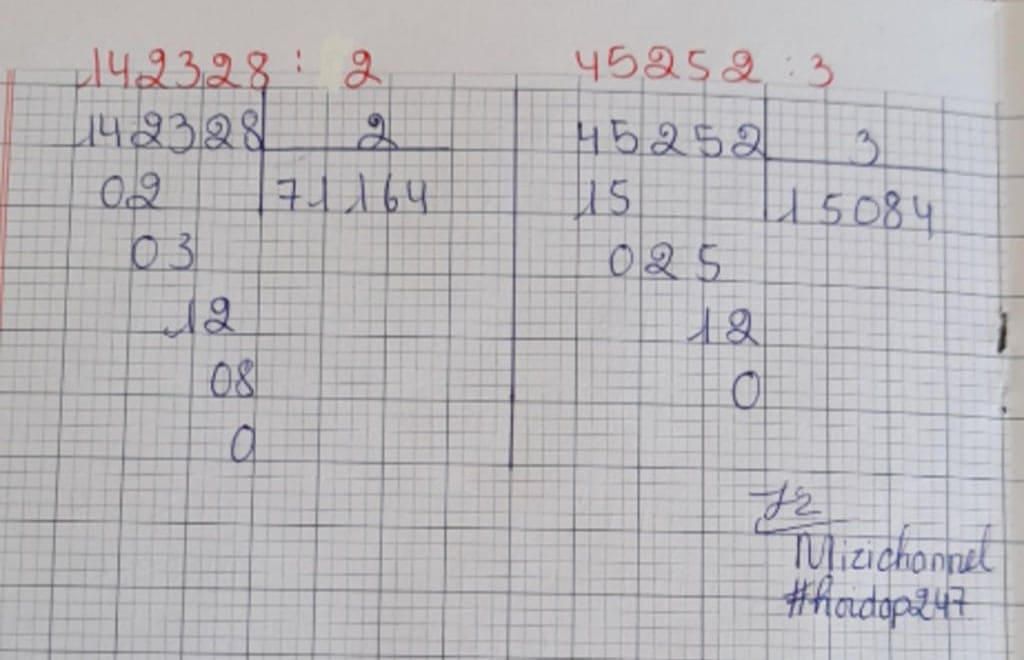 142328 : 2
142328 2
02 71164
03
12
08
0
45252 : 3
45252 3
15 15084
025
12
0
Mizichannel
#hoidap247